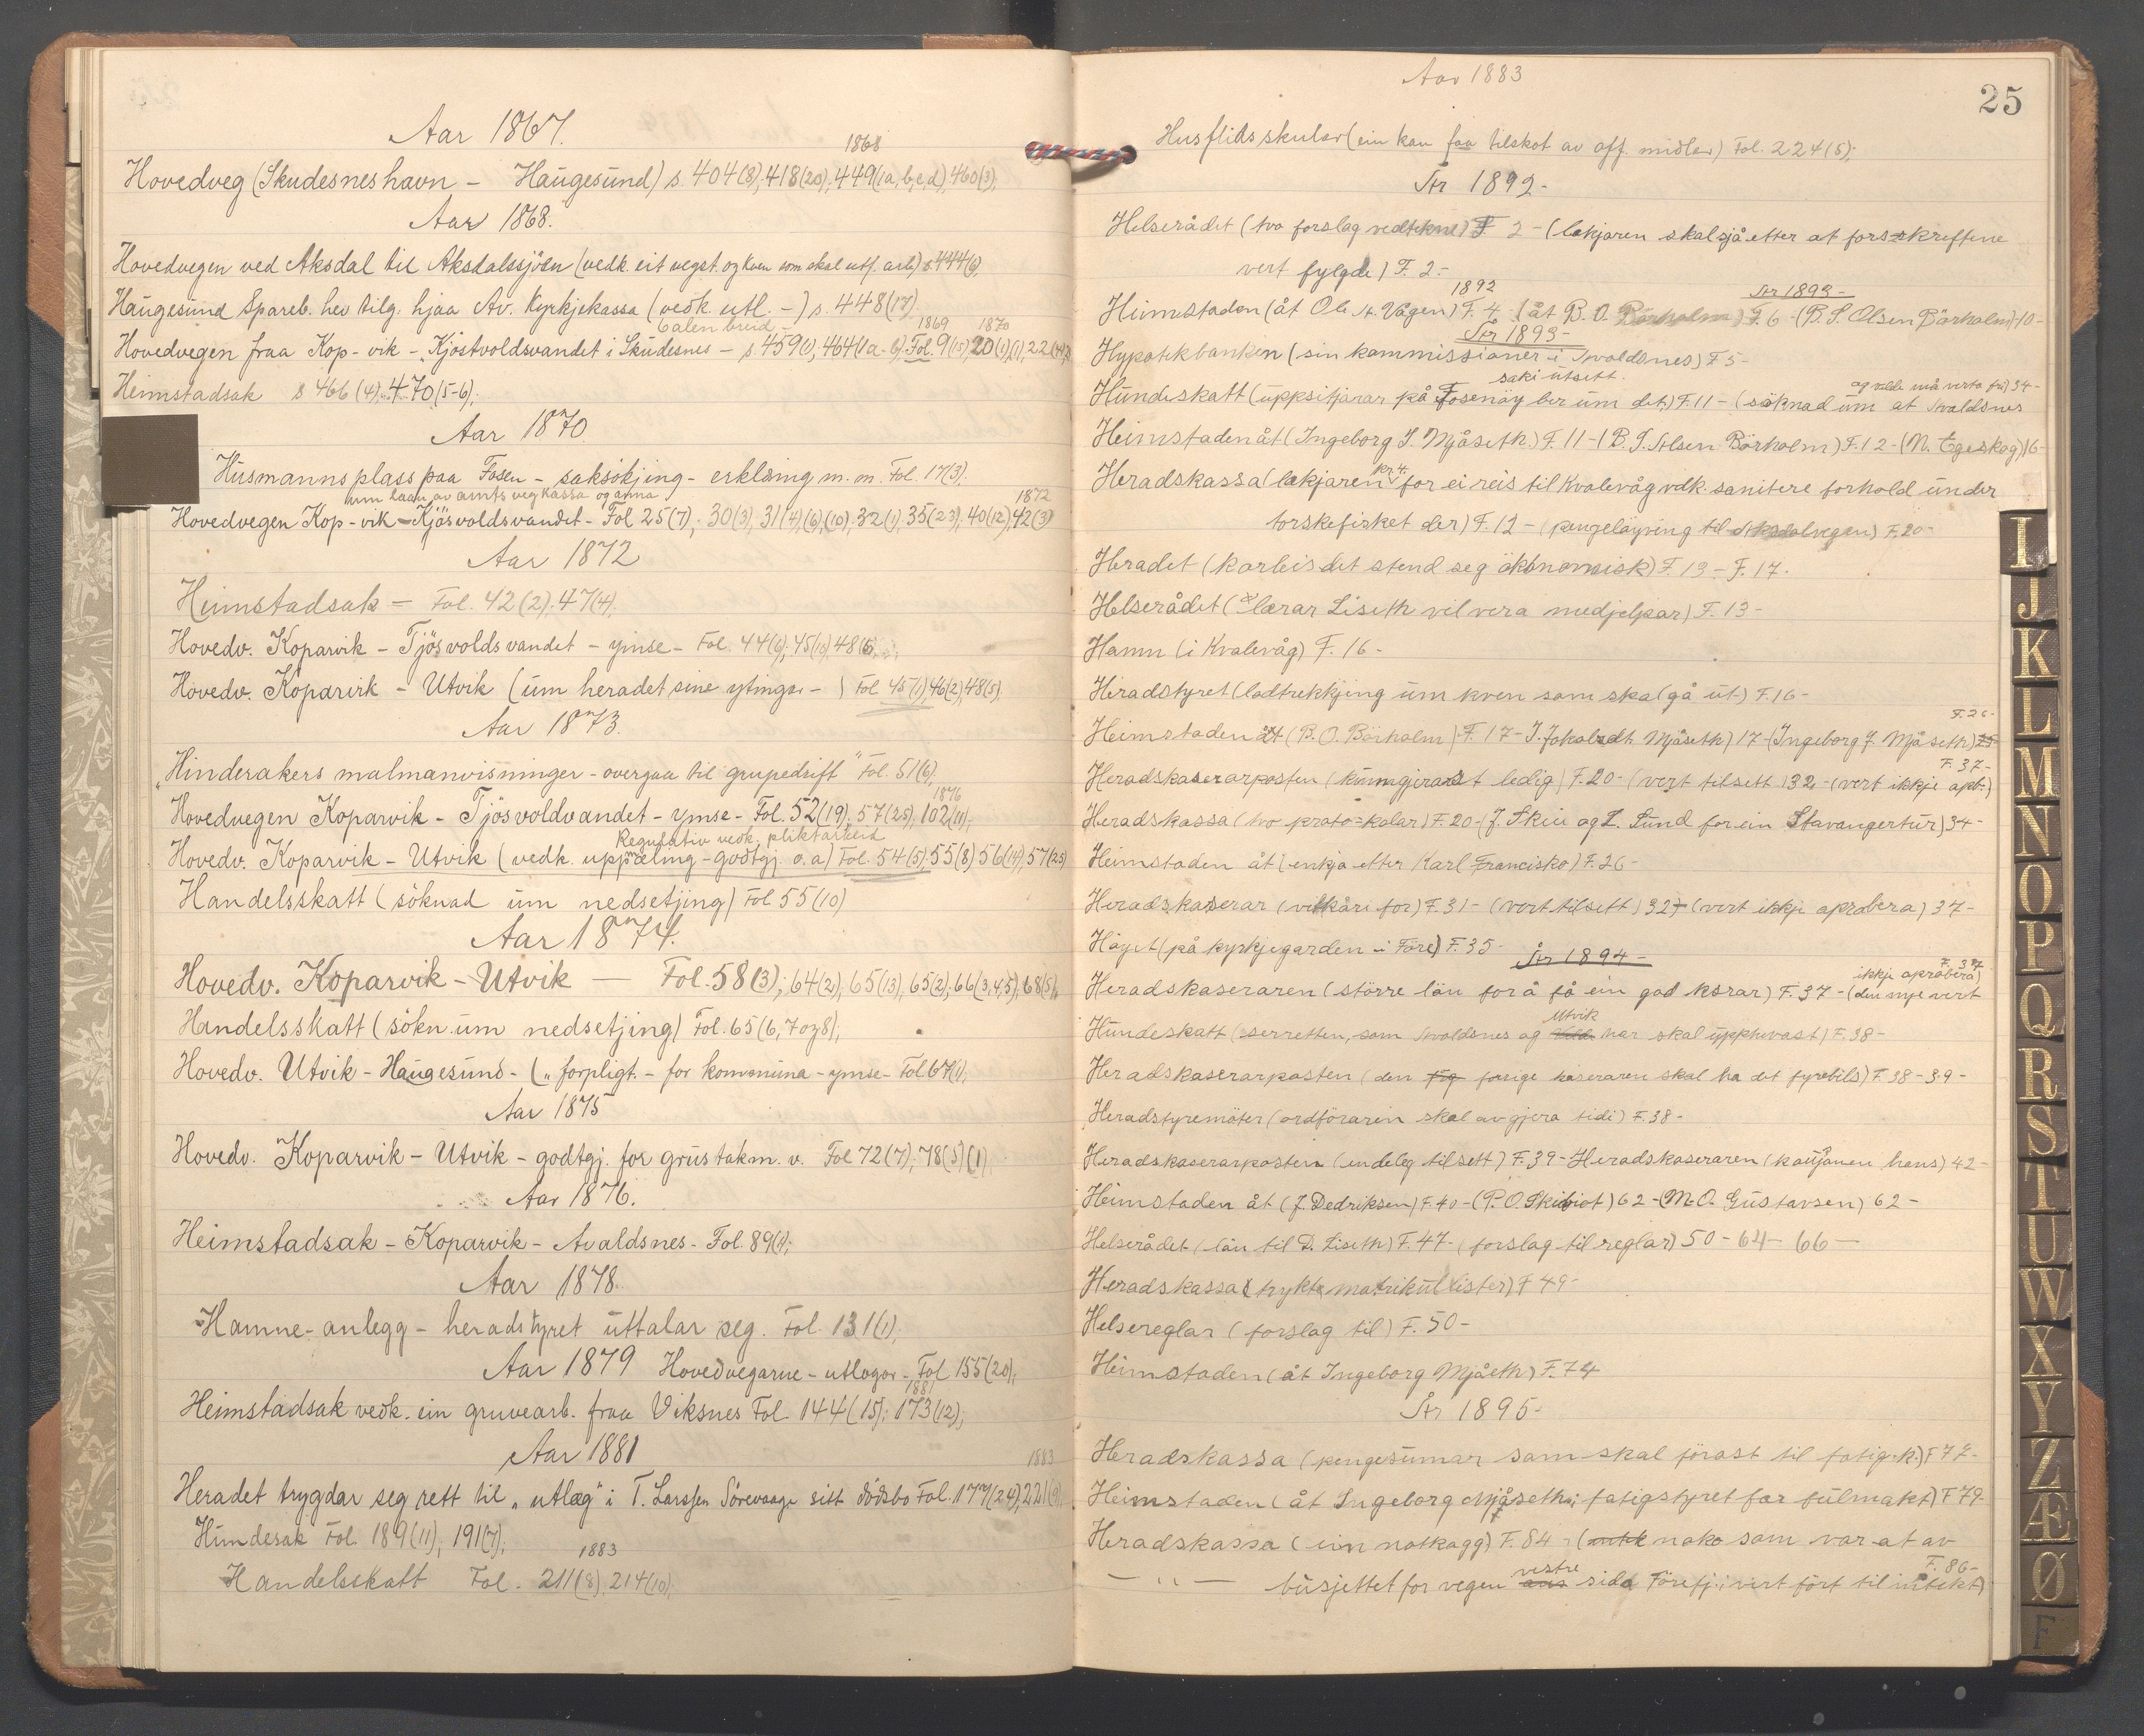 Aar 1867.
1868
Hovedveg (Skudesneshavn - Haugesund) s. 404(8), 418(20), 449(1a,b,c,d), 460(3);
Aar 1868.
Hovedvegen ved Aksdal til Aksdalssjöen (vedk. eit vegst. og kven som skal utf. arb.) s. 444(6),
Haugesund Spareb. hev tilg. hjaa Av. Kyrkjekassa (vedk. utl. -) s. 448(17).
6 alen breid - 1869 1870
Hovedvegen fraa Kop-vik - Kjöstvoldsvandet i Skudesnes - s. 459(1), 464(1a-b) Fol. 9(15), 20(1)(1), 22
Heimstadsak s 466(4); 470(5-6);
Aar 1870
Husmannsplass paa Fosen - saksökjing - erklæring m.m. Fol. 17(3).
um laan av amts vegkassa og anna 1872
Hovedvegen Kop-vik - Kjösvoldsvandet - Fol 25(7); 30(3), 31(4)(6),(10), 32(1), 35(23), 40(12), 42(3)
Aar 1872
Heimstadsak - Fol. 42(2); 47(4).
Hovedv. Koparvik - Tjösvoldsvandet - ymse - Fol. 44(6), 45(10), 48(6)
Hovedv. Koparvik - Utvik (um heradet sine ytingar - ) Fol 45(1), 46(2), 48(5).
Aar 1873.
"Hinderakers malmanvisninger - overgaa til grupedrift" Fol. 51(6),
1876
Hovedvegen Koparvik - Tjösvoldvandet - ymse - Fol. 52(19), 57(25), 102(11),
Regulativ vedk. pliktarbeid
Hovedv. Koparvik - Utvik (vedk. uppmæling - godtgj. o.a) Fol. 54(5), 55(8) 56(14), 57(25)
Handelsskatt (söknad um nedsetjing) Fol 55(10)
Aar 1874.
Hovedv. Koparvik - Utvik - Fol. 58(3); 64(2), 65(13), 65(2), 66(3,4,5), 68(5),
Handelsskatt (sökn. um nedsetjing) Fol. 65(6, 7 og 8),
Hovedv. Utvik - Haugesund - („ forpligt. - for kommuna - ymse - Fol 67(1),
Aar 1875
Hovedv. Koparvik - Utvik - godtgj. for grustak m. v. Fol 72(7), 78(5)(1),
Aar 1876.
Heimstadsak - Koparvik - Avaldsnes - Fol. 89(1);
Aar 1878.
Hamne-anlegg - heradstyret uttalar seg. Fol. 131(1);
Aar 1879 Hovedvegarne - utlogor - Fol 155(20),
1881
Heimstadsak vedk. ein gruvearb. fraa Viksnes Fol. 144(15); 173(12);
Aar 1881
1883
Heradet trygdar seg rett til „utlæg" i T. Larssen Sörevaage sitt dödsbo Fol. 177(24), 221(9)
Hundesak Fol. 189(11), 191(7),
1883
Handelsskatt Fol. 211(8), 214(10).
Aar 1883
25
Husflidsskular (ein kan faa tilskot av off. midlar) Fol. 224(5);
År 1892-
Helserådet (tvo forslag vedtekne) F 2 - (lækjaren skal sjå etter at forsskreftene
vert fylgde) F. 2.-
1892 År 1893-
Heimstaden (åt Ole A. Vågen) F. 4 - (åt B. O. Börholm) F. 6 - (B. S. Olsen Börholm) 10-
År 1893-
Hypotekbanken (sin kommissioner i Avaldsnes) F 5-
saki utsett. og valde må verta fri) 34-
Hundeskatt (uppsitjarar på Fosenöy ber um det) F. 11 - (söknad um at Avaldsnes
Heimstaden åt (Ingeborg J. Mjåseth) F. 11 - (B. S. Olsen Börholm) F. 12 - (N. Egeskog) 16-
kr. 4.
Heradskassa (lækjaren for ei reis til Kvalevåg vdk. sanitere forhold under
torskefisket der) F. 12 - (pengelöyving til Aksdalvegen) F. 20-
Heradet (korleis det stend seg ökonomisk) F. 13 - F. 17.
Helserådet (lærar Liseth vil vera medhjelpar) F. 13-
Hamn (i Kvalevåg) F. 16-
Heradstyret (lodtrekkjing um kven som skal gå ut) F. 16-
F. 26-
Heimstaden åt (B. O. Börholm) F. 17 - J. Jokobsdt. Mjåseth) 17 - (Ingeborg J. Mjåseth) 25
F. 37-
Heradskaserarposten (kunngjerast ledig) F. 20 - (vert tilsett) 32 - (vert ikkje apb.)
Heradskassa (tvo protokolar) F. 20 - (J. Skeie og L. Sund for ein Stavangertur) 34-
Heimstaden åt (enkja etter Karl Francisko) F. 26-
Heradskaserar (vilkåri for) F. 31 - (vert tilsett) 32 - (vert ikkje aprobera) 37-
Höyet (på kyrkjegarden i Före) F. 35-
År 1894-
F. 37
ikkje aprobera)
Heradskaseraren (större lön for å få ein god karar) F. 37 - (den nye vert
Utvik
Hundeskatt (serretten, som Avaldsnes og har skal upphevast) F. 38-
Heradskaserarposten (den forige kaseraren skal ha det fyrebils) F. 38 - 39-
Heradstyremöter (ordföraren skal avgjera tidi) F. 38-
Heradskaserarposten (endeleg tilsett) F. 39 - Heradskaseraren (kausjonen hans) 42-
Heimstaden åt (J. Dedriksen) F. 40 - (P. O. Skibiot) 62 - (M. O. Gustavsen) 62-
Helserådet (lön til D. Liseth) F. 47 - (forslag til reglar) 50 - 64 - 66-
Heradskassa (trykte matrikullister) F 49-
Helsereglar (forslag til) F. 50-
Heimstaden (åt Ingeborg Mjåeth) F. 74
År 1895-
Heradskassa (pengesumar som skal förast til fatig. k.) F 77-
Heimstaden (åt Ingeborg Mjåseth; fatigstyret får fulmakt) F 79-
Heradskassa (um notkagg) F. 84 - (noko som var at av
F. 86-
vestre
- " - busjettet for vegen sida Förefj.; vert fört til intekt)
I
J
K
L
M
N
O
P
Q
R
S
T
U
W
X
Y
Z
Æ
Ø
F